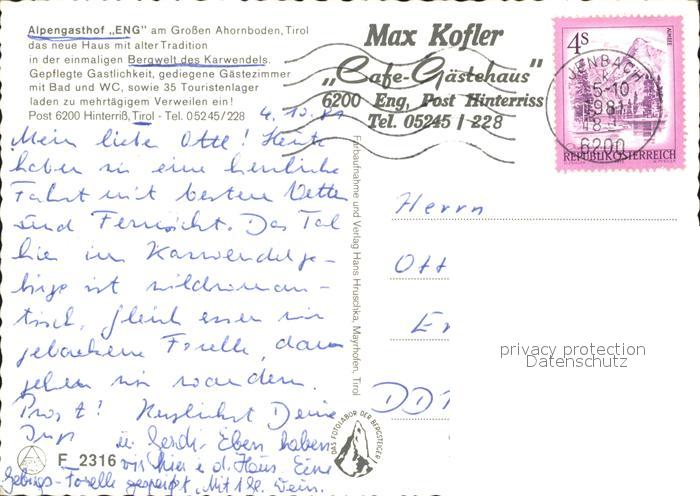 Alpengasthof „ENG" am Großen Ahornboden, Tirol
das neue Haus mit alter Tradition
in der einmaligen Bergwelt des Karwendels.
Gepflegte Gastlichkeit, gediegene Gästezimmer
mit Bad und WC, sowie 35 Touristenlager
laden zu mehrtägigem Verweilen ein!
Post 6200 Hinterriß, Tirol - Tel. 05245/228
Max Kofler
„Cafe-Gästehaus"
6200 Eng, Post Hinterriss
Tel. 05245 / 228
4 S
ALMSEE
REPUBLIK ÖSTERREICH
JENBACH
-5-10
1981
18
6200
4.10.81
Mein lieber Otto! Heute
haben wir eine herrliche
Fahrt mit bestem Wetter
und Fernsicht. Das Tal
hier im Karwendelge-
birge ist wildroman-
tisch, gleich essen wir
gebackene Forelle, dann
gehen wir wandern.
Prost! Herzlichst Deine
u. Gerd. Eben haben
wir hier i. d. Haus Eine
Gebirgs-Forelle gespeist. Mit 1 gl. Wein.
F 2316
Farbaufnahme und Verlag Hans Hruschka, Mayrhofen, Tirol
DAS FOTOLABOR DER BERGSTEIGER
Herrn
Ott
Er
DDR
privacy protection
Datenschutz